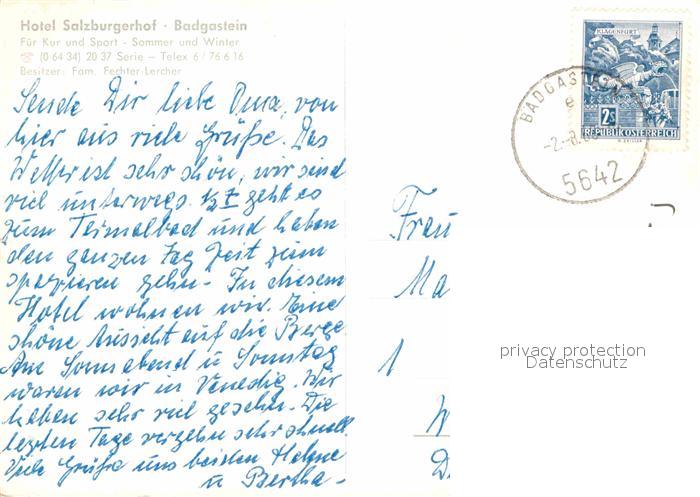 Hotel Salzburgerhof · Badgastein
Für Kur und Sport - Sommer und Winter
☎ (0 64 34) 20 37 Serie – Telex 6 / 76 6 16
Besitzer: Fam. Fechter-Lercher
Sende Dir liebe Oma, von
hier aus viele Grüße. Das
Wetter ist sehr schön, wir sind
viel unterwegs. geht es
zum Termalbad und haben
den ganzen Tag Zeit zum
spazieren gehn. In diesem
Hotel wohnen wir. Eine
schöne Aussicht auf die Berge.
Am Sonnabend u Sonntag
waren wir in Venedig. Wir
haben sehr viel gesehn. Die
letzten Tage vergehn sehr schnell.
Viele Grüße uns beiden
u Bertha -
KLAGENFURT
2S
REPUBLIK ÖSTERREICH
BADGASTEIN
e
-2.-8.
5642
Frau
Ma
1
W
D
privacy protection
Datenschutz